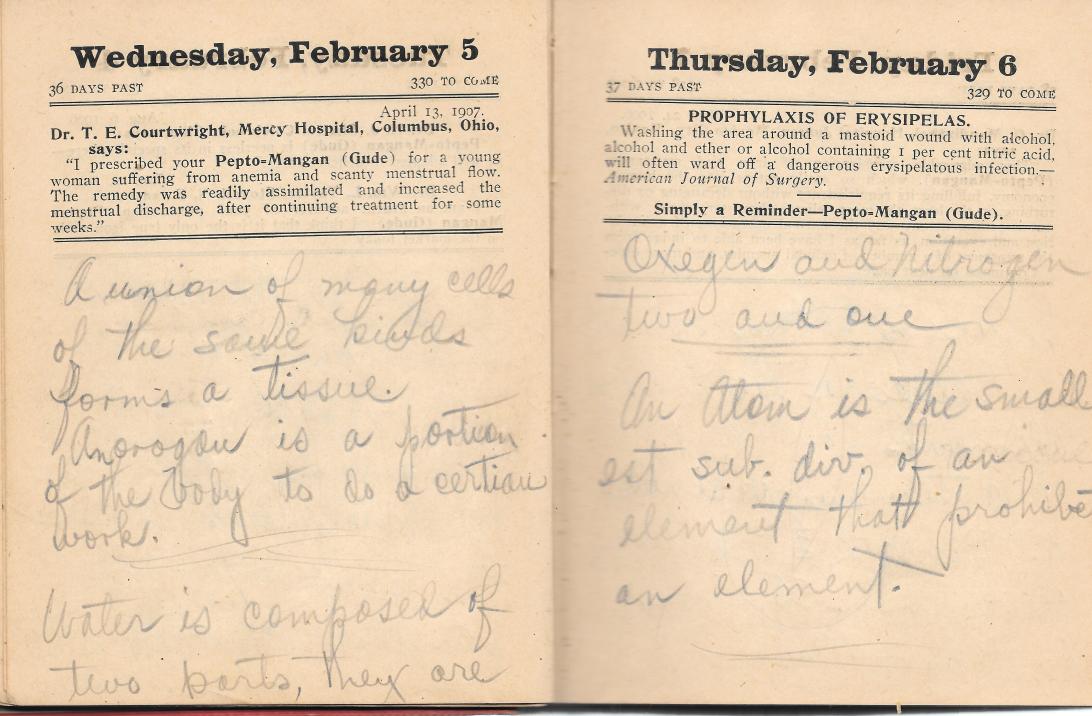 Wednesday, February 5
36 DAYS PAST 330 TO COME
April 13, 1907.
Dr. T. E. Courtwright, Mercy Hospital, Columbus, Ohio,
says:
"I prescribed your Pepto=Mangan (Gude) for a young
woman suffering from anemia and scanty menstrual flow.
The remedy was readily assimilated and increased the
menstrual discharge, after continuing treatment for some
weeks."
A union of many cells
of the same kinds
forms a tissue.
An orogan is a portion
of the Body to do a certian
work.
Water is composed of
two parts, they are
Thursday, February 6
37 DAYS PAST 329 TO COME
PROPHYLAXIS OF ERYSIPELAS.
Washing the area around a mastoid wound with alcohol,
alcohol and ether or alcohol containing 1 per cent nitric acid,
will often ward off a dangerous erysipelatous infection.—
American Journal of Surgery.
Simply a Reminder—Pepto=Mangan (Gude).
Oxegen and Nitrogen
two and one
An Atom is the small
est sub. div. of an
element that prohibe
an element.